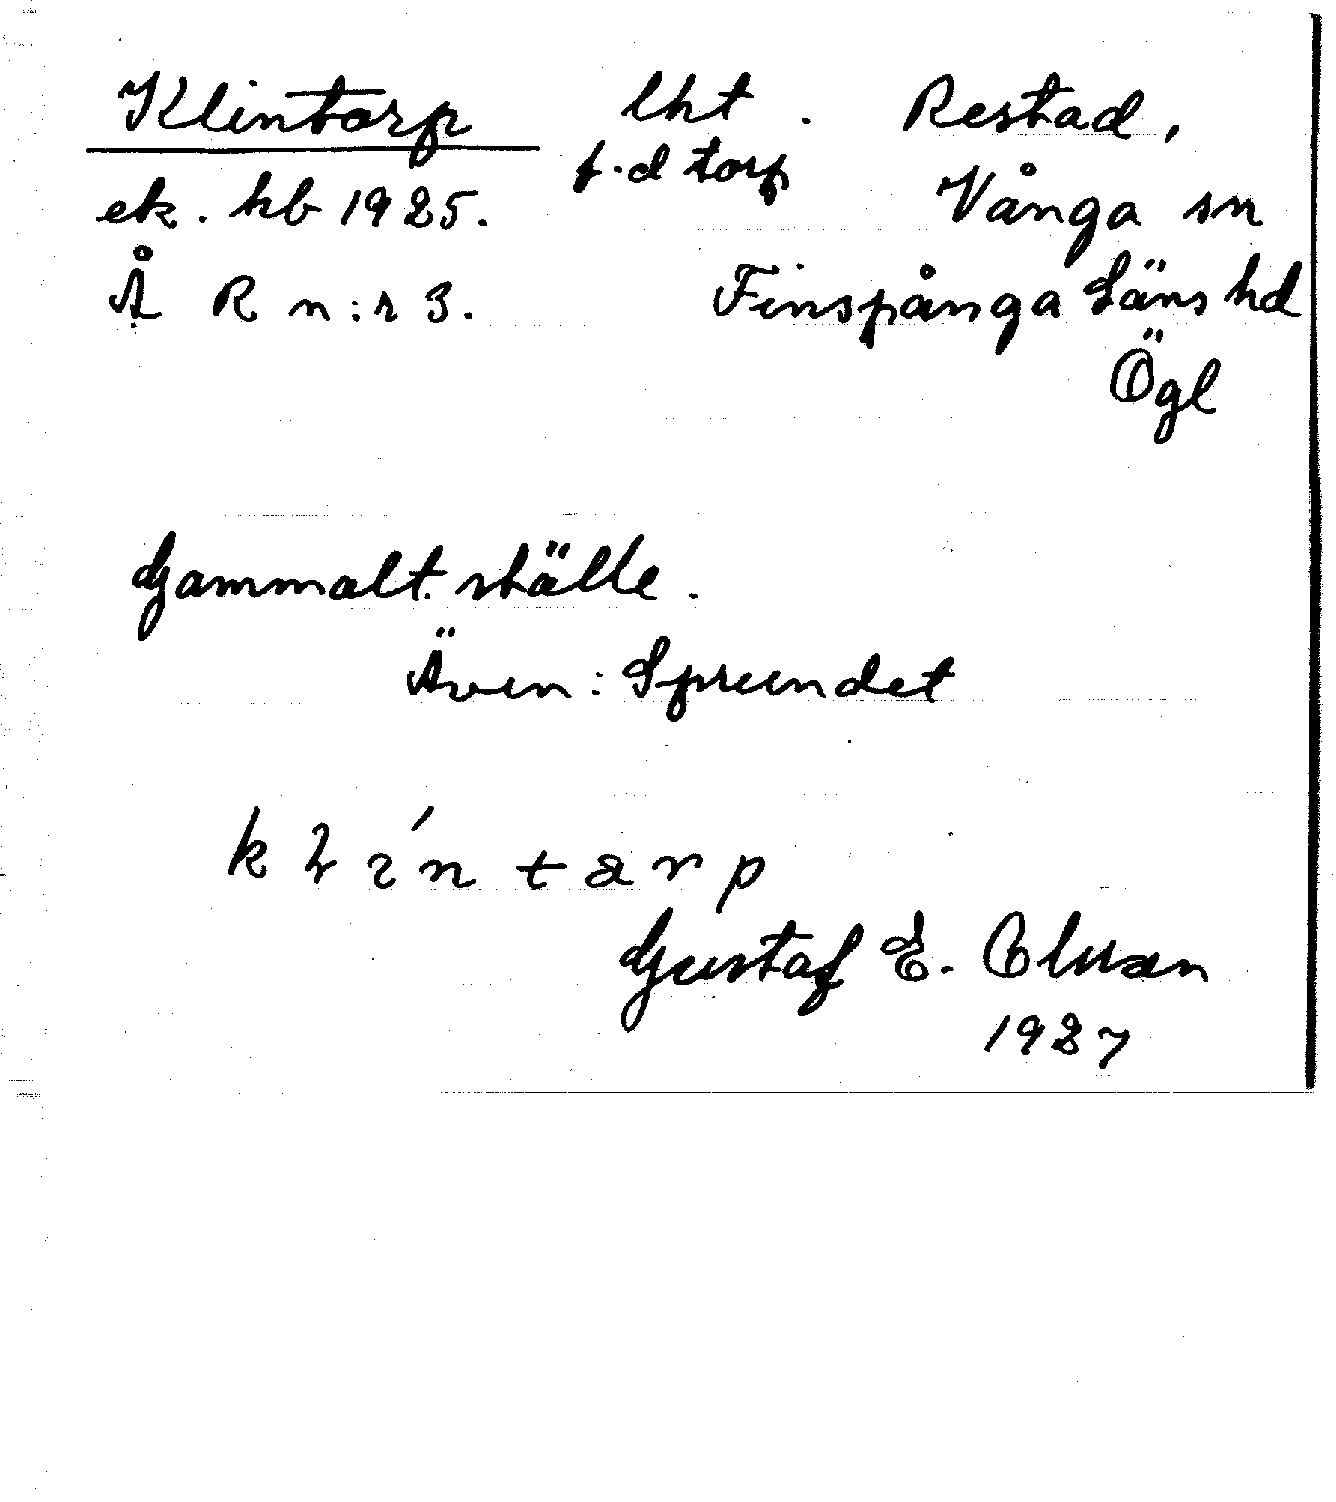 Klintorp lht. Restad,
f.d torp
ek. hb 1925. Vånga sn
Å R n:r 3. Finspånga Läns hd
Ögl
Gammalt ställe.
Även: Sprundet
Gustaf E. Olsson
1927